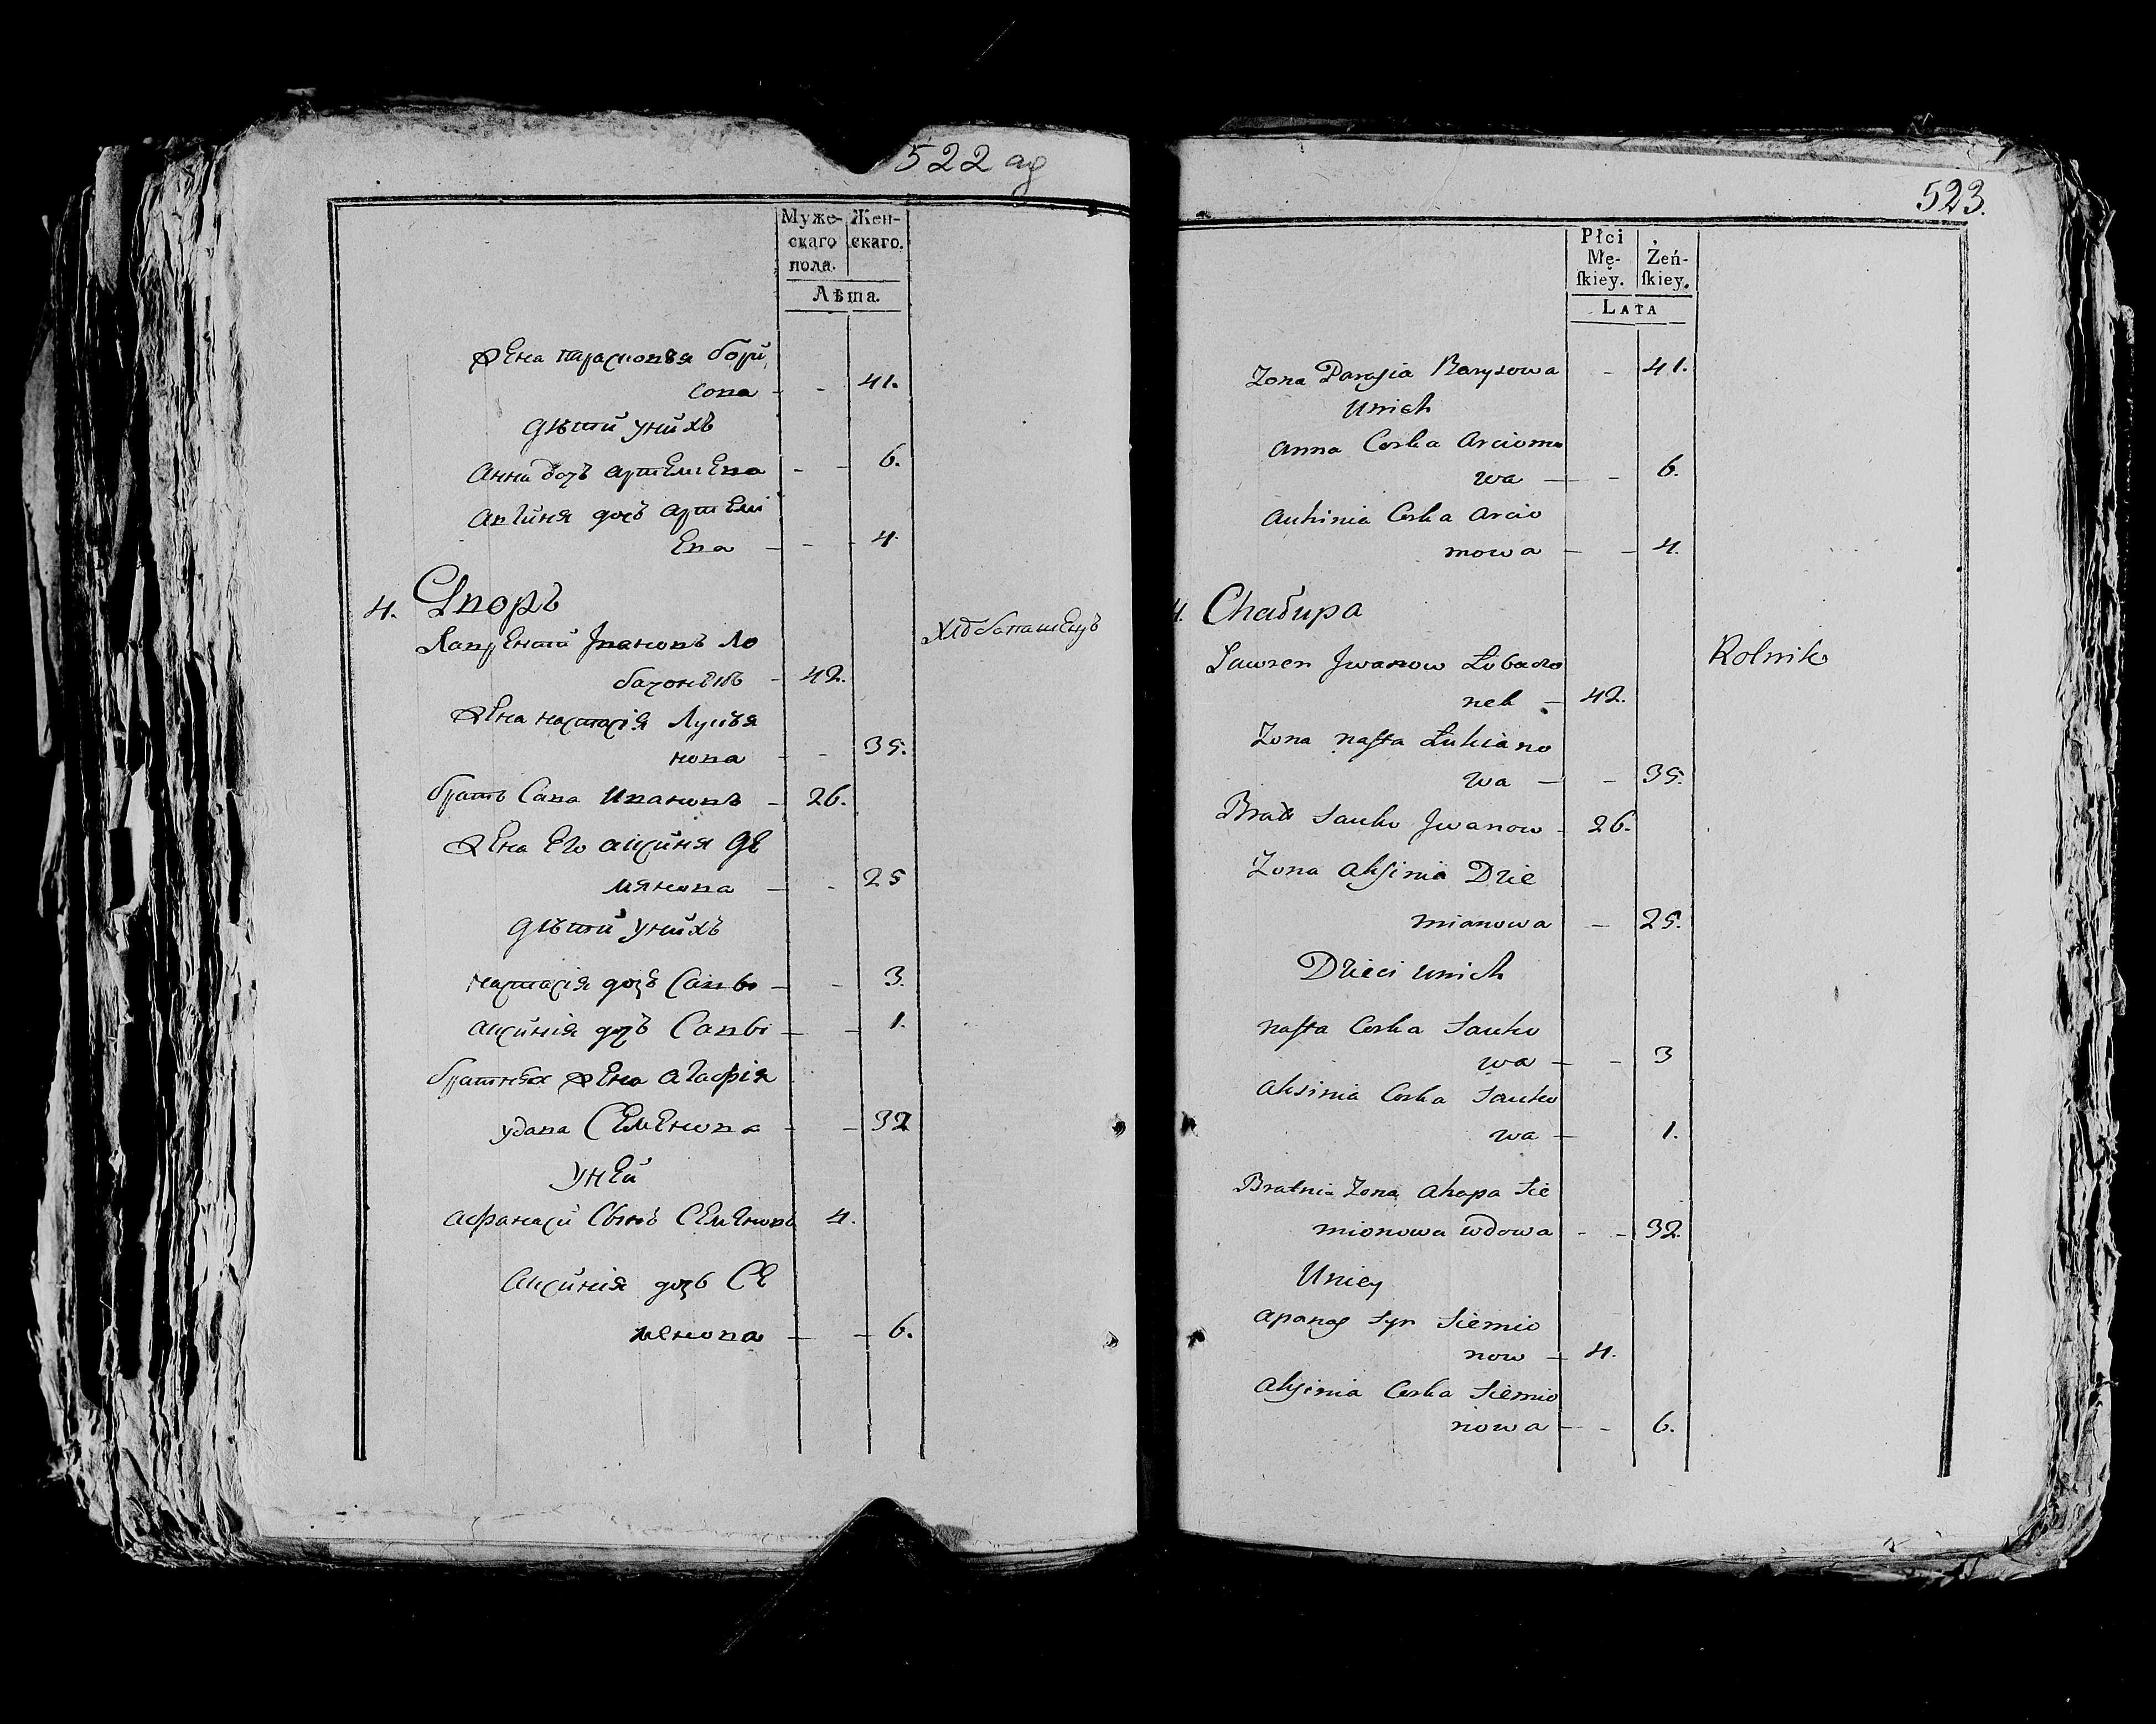 522 ад
Муже- Жен-
скаго скаго.
пола.
Лѣта.
жена парасковья бори
сова - - 41.
дѣти унихъ
Анна дочъ артемьева - - 6.
Авгиня дочъ артемь
ева - - - 4.
4. Дворъ
Лаврентий Ивановъ Ло
баченокъ - 42.
Хлебопашецъ
жена настасія Лукья
нова - - 35.
братъ Сава Ивановъ - 26.
жена его аксиня де
мянова - - 25
дѣти унихъ
настасія дочъ Савы - - 3.
аксинія дочъ Савы - - 1.
братнья жена агафія
удава Семенова - - 32
у ней
афанаси сынъ Семеновъ 4.
Аксинія дочъ Се
менова - - 6.
523.
Płci
Mę- Żeń-
ſkiey. ſkiey.
LATA
Zona Parasia Barysowa - 41.
Unich
Anna Corka Arciomo
wa - - 6.
Auhinia Corka Arcio
mowa - - 4.
4. Chałupa
Ławren Jwanow Łobaczo
nek - 42.
Rolnik
Zona nasta Łukiano
wa - - 35.
Brat Sauko Jwanow - 26.
Zona Aksinia Dzie
mianowa - 25.
Dzieci unich
nasta Corka Sauko
wa - - 3
Aksinia Corka Sauko
wa - 1.
Bratnia Zona Ahapa Sie
mionowa wdowa - - 32.
Uniey
Apanas Syn Siemio
now - 4.
Aksinia Corka Siemio
nowa - - 6.